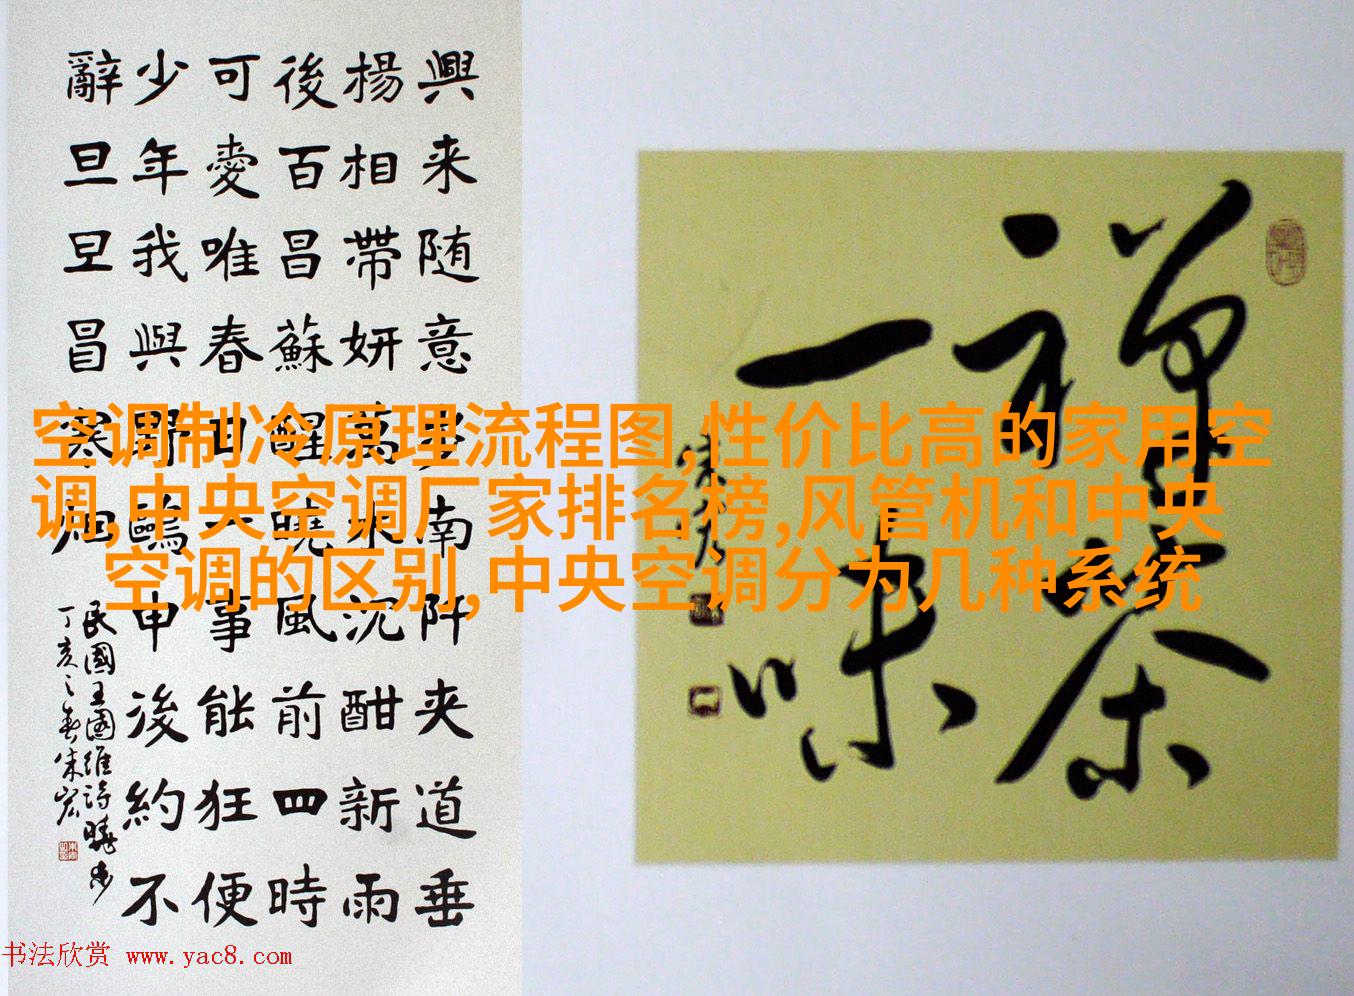 興来随意步南阡夹道垂
楊相帶妍萬木沉酣新雨
後百昌蘇醒曉風前四時
可愛唯春日一事能狂便
少年我與野鷗申後約不
辭旦旦冒寒烟
民國王國維詩曉步
丁亥之春朱宏
禪茶
一味
朱宏
空调制冷原理流程图,性价比高的家用空
调,中央空调厂家排名榜,风管机和中央
空调的区别,中央空调分为几种系统
书法欣赏 www.yac8.com